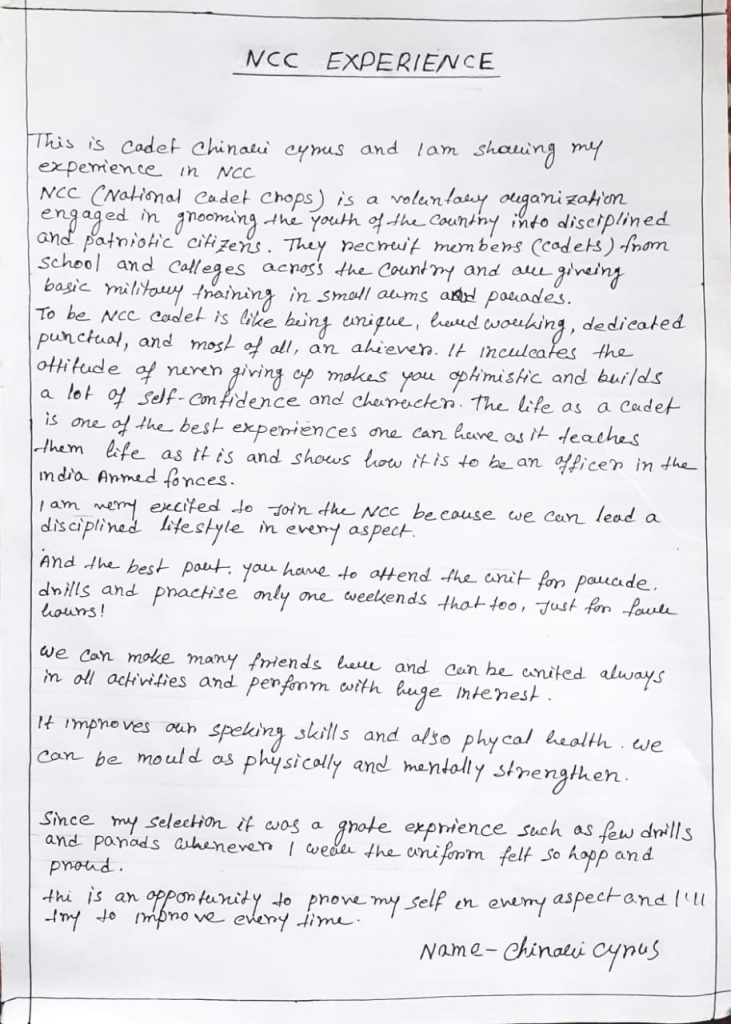 NCC EXPERIENCE
This is cadet Chinari cyrus and I am sharing my
experience in NCC
NCC (National Cadet Chops) is a voluntary organization
engaged in grooming the youth of the country into disciplined
and patriotic citizens. They recruit members (cadets) from
school and calleges across the country and are giveing
basic military training in small arms and parades.
To be NCC cadet is like being unique, hardworking, dedicated
punctual, and most of all, an ahiever. It inculcates the
attitude of never giving up makes you optimistic and builds
a lot of self-confidence and character. The life as a cadet
is one of the best experiences one can have as it teaches
them life as it is and shows how it is to be an officer in the
india Armed forces.
I am very excited to Join the NCC because we can lead a
disciplined lifestyle in every aspect.
And the best part. you have to attend the unit for parade.
drills and practise only one weekends that too, Just for four
hours!
we can make many friends here and can be united always
in all activities and perform with huge interest.
It improves our speking skills and also phycal health. we
can be mould as physically and mentally strengthen.
Since my selection it was a grate exprience such as few drills
and parads whenever I wear the uniform felt so happ and
proud.
thi is an opportunity to prove my self in every aspect and I'll
try to improve every time.
Name - Chinari Cyrus